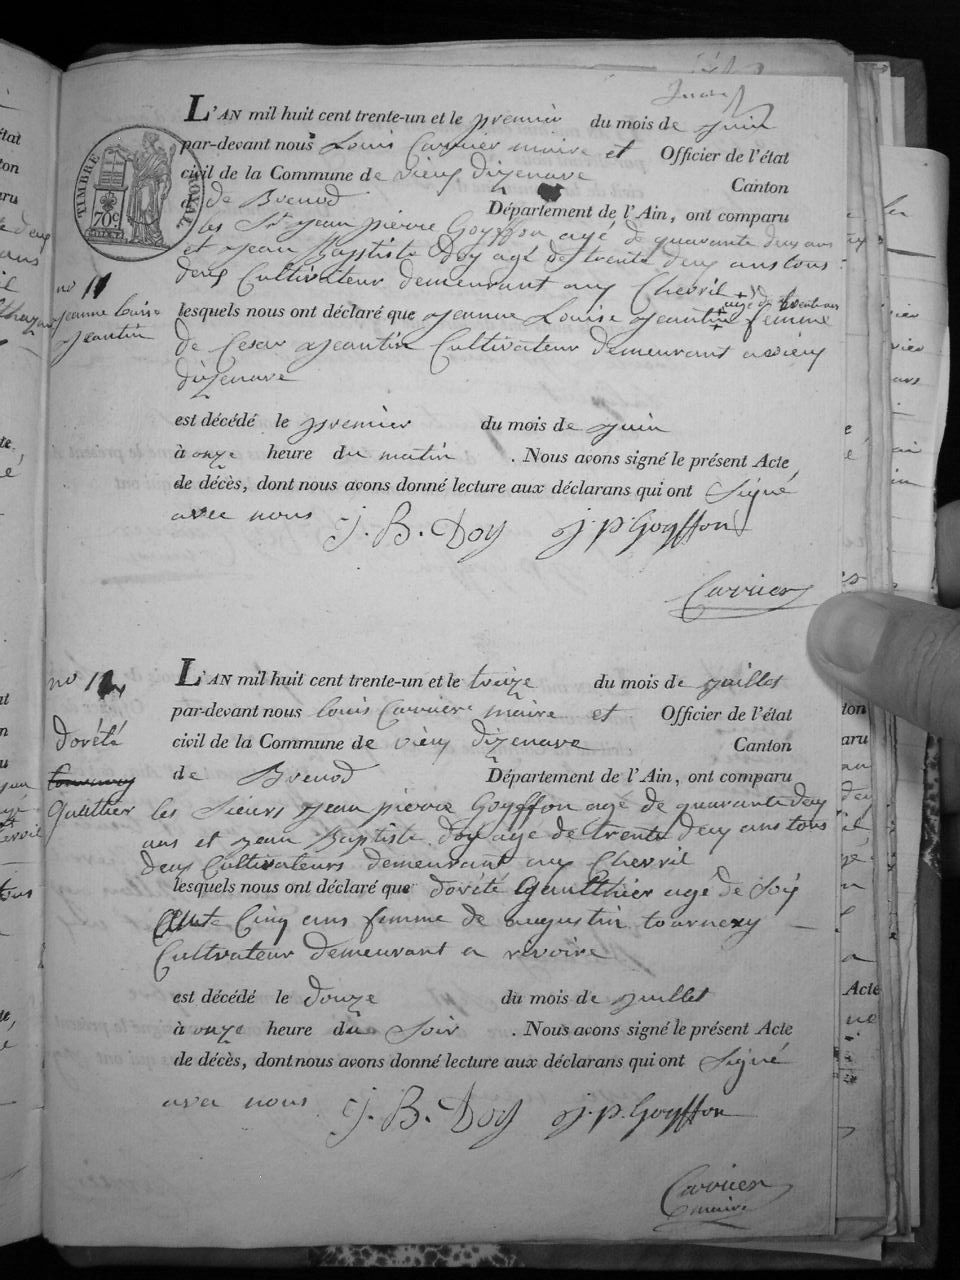 L'AN mil huit cent trente-un et le premier du mois de juin
par-devant nous Louis Carrier maire et Officier de l'état
civil de la Commune de vieu dizenave Canton
de Brenod Département de l'Ain, ont comparu
les Sr jean pierre Goyffon agé de quarante deux ans
et jean Baptiste Doy agé de trente deux ans tous
deux Cultivateur demeurant aux Chevril
TIMBRE ROYAL
70c
no 11
jeanne louise
jeantin
lesquels nous ont déclaré que jeanne Louise jeantin femme
de Cesar jeantin Cultivateur demeurant a vieux
dizenave
est décédé le premier du mois de juin
à onze heure du matin . Nous avons signé le présent Acte
de décès, dont nous avons donné lecture aux déclarans qui ont Signé
avec nous J. B. Doy j. p. Goyffon
Carrier
no 12
dorété
Gauthier
L'AN mil huit cent trente-un et le treize du mois de juillet
par-devant nous louis Carrier maire et Officier de l'état
civil de la Commune de vieu dizenave Canton
de Brenod Département de l'Ain, ont comparu
les Sieurs jean pierre Goyffon agé de quarante deux
ans et jean Baptiste doy age de trente deux ans tous
deux Cultivateurs demeurant aux Chevril
lesquels nous ont déclaré que dorété Gaulthier agé de Soix
ante Cinq ans femme de augustin tournery
Cultivateur demeurant a revoire
est décédé le douze du mois de juillet
à onze heure du Soir . Nous avons signé le présent Acte
de décès, dont nous avons donné lecture aux déclarans qui ont Signé
avec nous J. B. Doy j. p. Goyffon
Carrier
maire